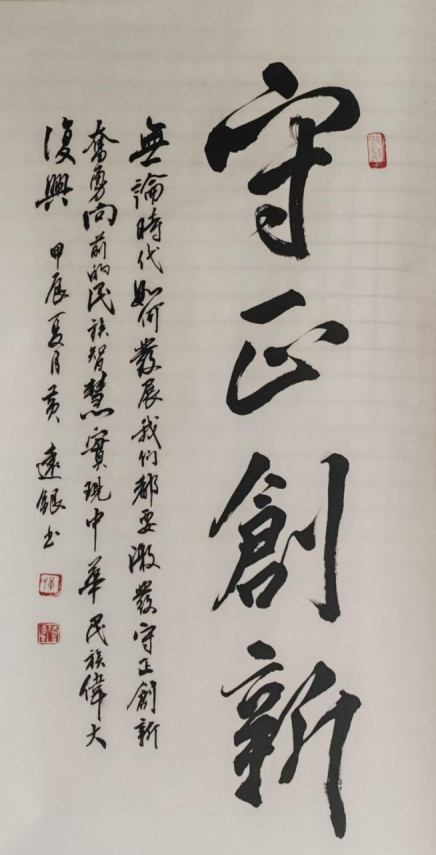 守正創新
無論時代如何發展我们都要激發守正創新
奮勇向前的民族智慧實現中華民族偉大
復興 甲辰夏月黄遠銀书